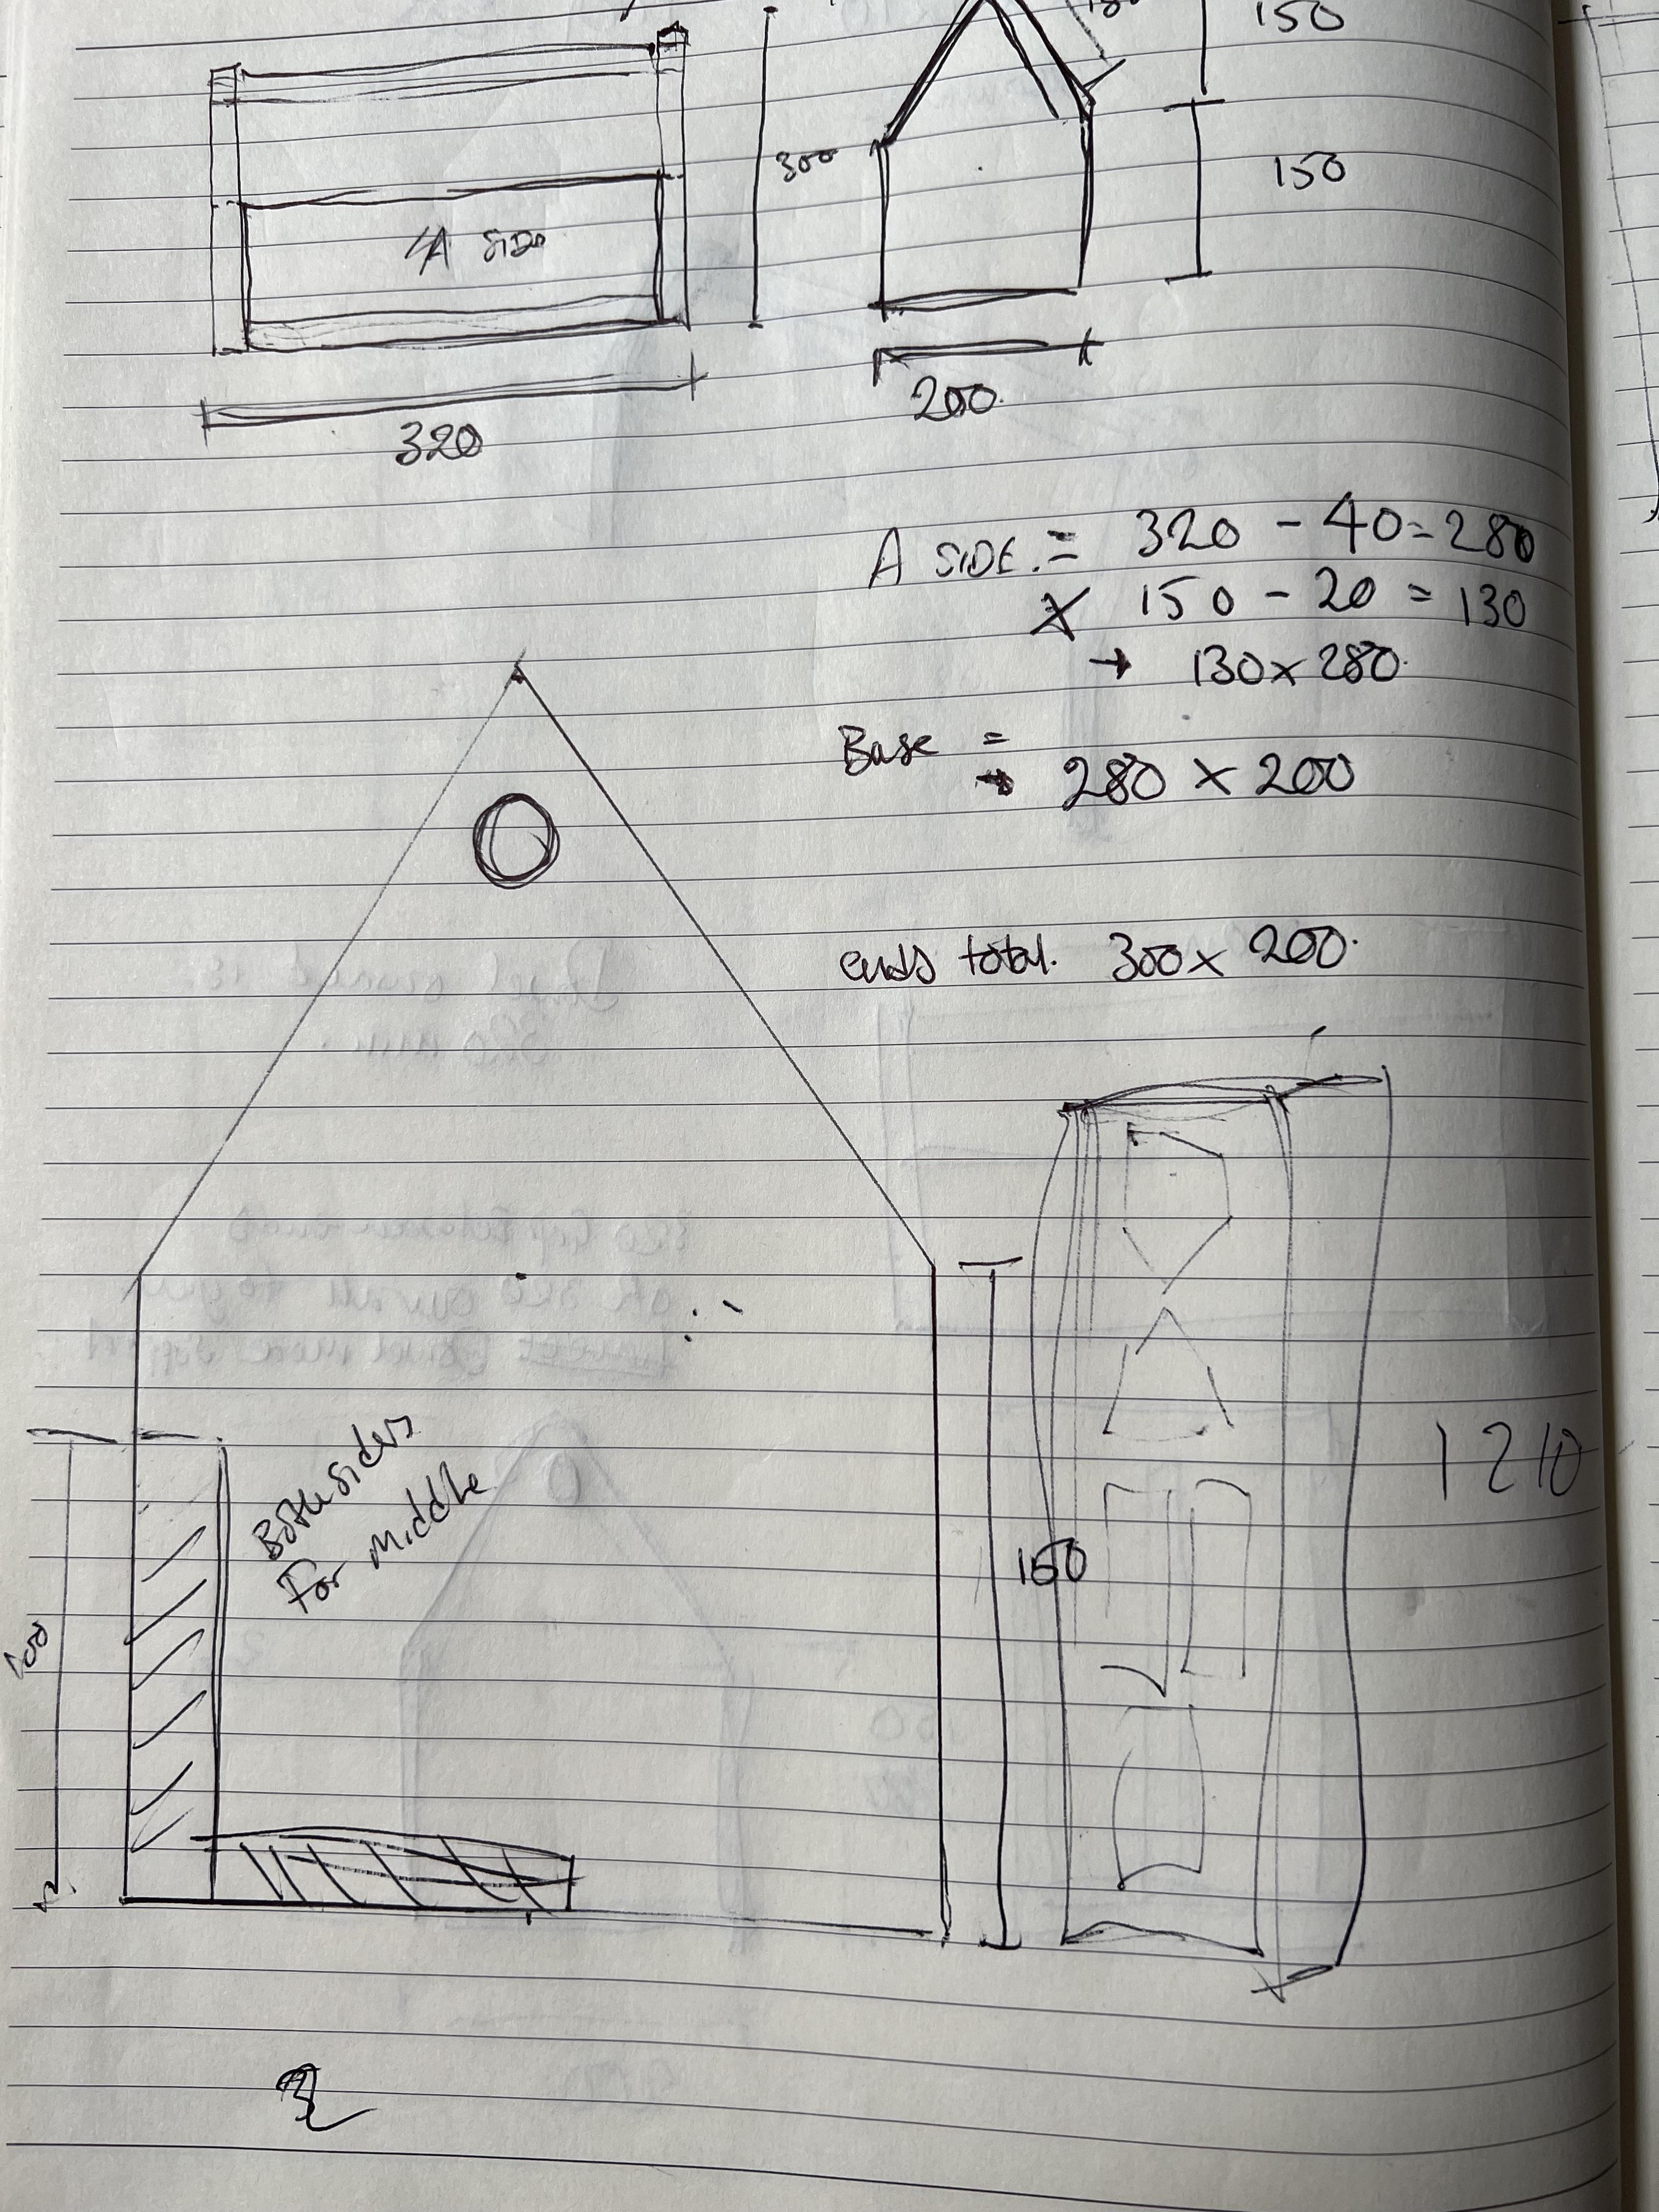 150
300
150
A SIDE
200.
320
A SIDE. = 320 - 40 = 280
X 150 - 20 = 130
→ 130 x 280.
Base =
→ 280 x 200
ends total. 300 x 200.
1210
Both sides
For middle
150
100